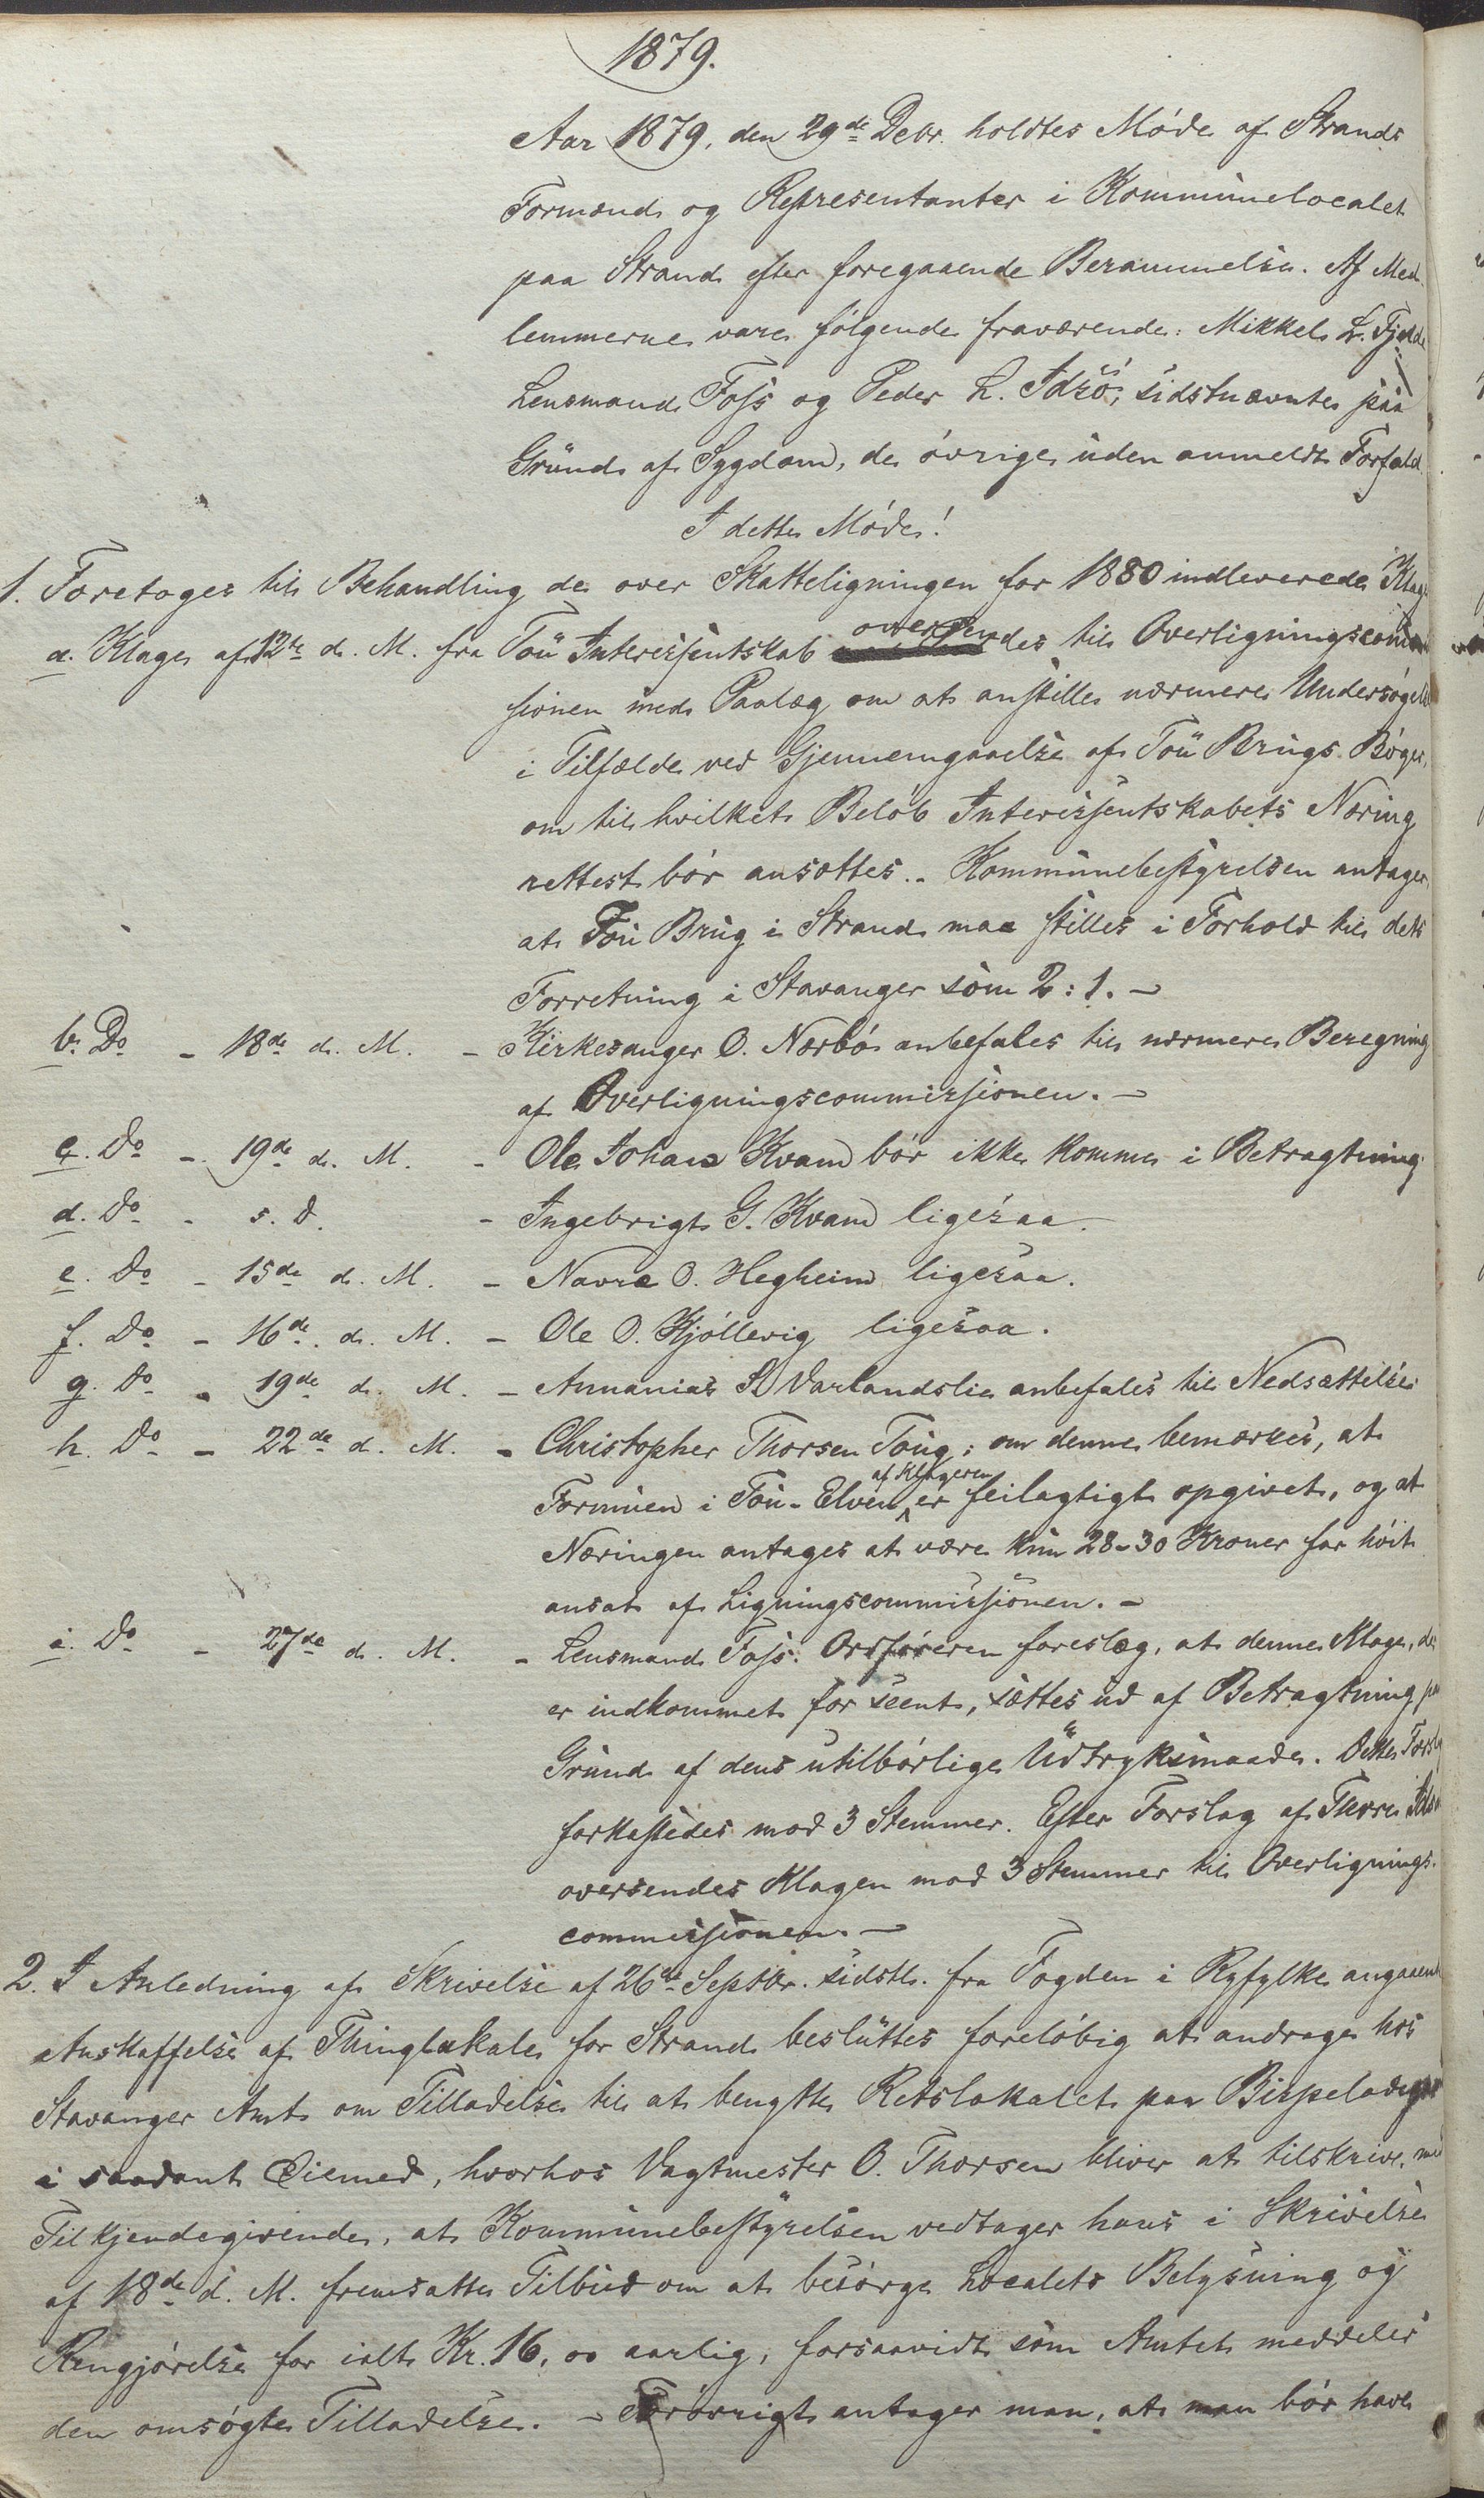 1879.
Aar 1879, den 29de Debr. holdtes Møde af Strands
Formænd og Representanter i Kommunelocalet
paa Strand efter foregaaende Berammelse. Af Med-
lemmerne vare følgende fraværende: Mikkel L. Fjelde
Lensmand Foss og Peder L. Idsø, sidstnævnte paa
Grund af Sygdom, de øvrige uden anmeldt Forfald.
I dette Møde!
1. Foretoges til Behandling de over Skatteligningen for 1880 indleverede Klag
a. Klage af 12te d. M. fra Tou Interessentskab oversendes til Overligningscom
sionen med Paalæg om at anstille nærmere Undersøgelse
i Tilfælde ved Gjennemgaaelse af Tou Brugs Bøger,
om til hvilket Beløb Interessentskabets Næring
rettest bør ansættes. - Kommunebestyrelsen antager,
at Tou Brug i Strand maa stilles i Forhold til dets
Forretning i Stavanger som 2:1. -
b. Do - 18de d. M. - Kirkesanger O. Nærbø anbefales til nærmere Beregning
af Overligningscommissionen. -
c. Do - 19de d. M. - Ole Johan Kvam bør ikke komme i Betragtning.
d. Do - s. D. - Ingebrigt G. Kvam ligesaa.
e. Do - 15de d. M. - Navre O. Hegheim ligesaa.
f. Do - 16de d. M. - Ole O. Kjøllevig ligesaa.
g. Do - 19de d. M. - Annanias S. Varlandslie anbefales til Nedsættelse.
h. Do - 22de d. M. - Christopher Thorsen Toug; om denne bemærkes, at
Formuen i Tou-Elven af Klageren er feilagtigt opgivet, og at
Næringen antages at være kun 28-30 Kroner for høit
ansat af Ligningscommissionen. -
i. Do - 27de d. M. - Lensmand Foss. Ordføreren foreslog, at denne Klage, der
er indkommet for seent, sættes ud af Betragtning paa
Grund af dens utilbørlige Udtryksmaade. Dette Forslag
forkastedes mod 3 Stemmer. Efter Forslag af Thore
oversendes Klagen mod 3 Stemmer til Overlignings-
commissionen. -
2. I Anledning af Skrivelse af 26de Septbr. sidstl. fra Fogden i Ryfylke angaaende
Anskaffelse af Thinglokale for Strand besluttes foreløbig at andrage hos
Stavanger Amt om Tilladelse til at benytte Retslokalet paa Bispeladegaar
i saadant Øiemed, hvorhos Vagtmester O. Thorsen bliver at tilskrive, med
Tilkjendegivende, at Kommunebestyrelsen vedtager hans i Skrivelse
af 18de d. M. fremsatte Tilbud om at besørge Localets Belysning og
Rengjørelse for ialt Kr. 16,00 aarlig, forsaavidt som Amtet meddeler
den omsøgte Tilladelse. - Forøvrigt antager man, at man bør have